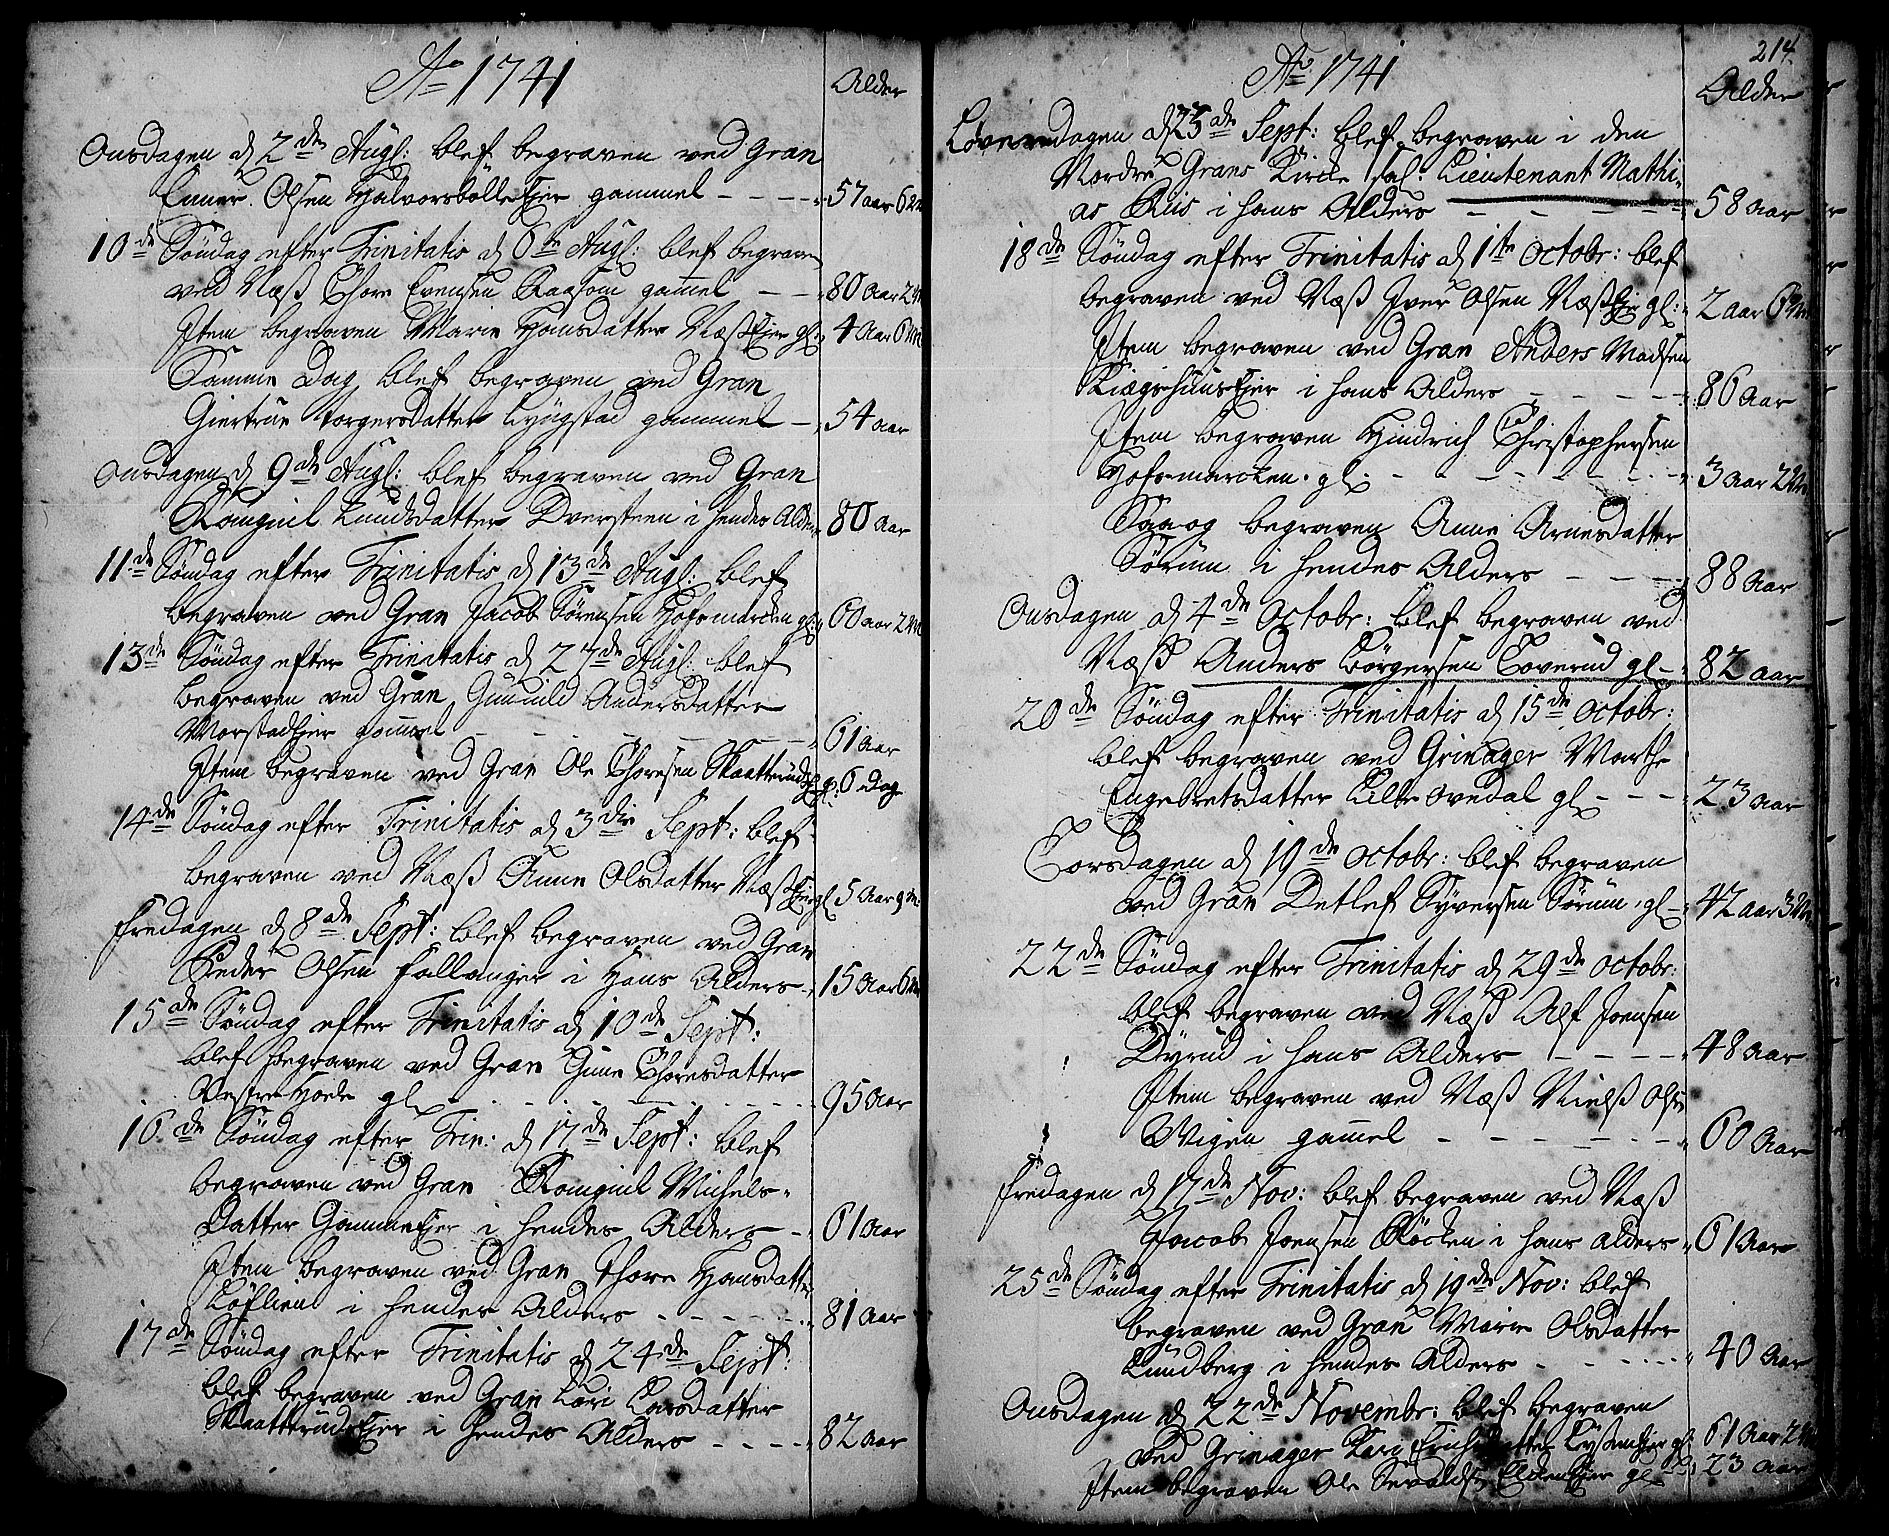 Aº 1741
Alder
Onsdagen d 2de Augl: blef begraven ved Gran
Enner Olsen Halvorsbölle Eier gammel - - - - 57 aar 6 M
10de Söndag efter Trinitatis d 6te Augl: blef begraven
ved Næß Thore Evensen Raasom gam̅el - - 80 Aar 2 M
Item begraven Marie Hansdatter Næß Eier gl 4 Aar 6 M
Samme Dag blef begraven ved Gran
Giertrue Torgersdatter Lyngstad gammel - 54 aar
Onsdagen d 9de Augl: blef begraven ved Gran
Ronguel Knudsdatter Dversteen i hendes Alder 80 Aar
11de Söndag efter Trinitatis d 13de Augl: blef
begraven ved Gran Jacob Sörensen Hofsmarcken gl: 60 aar 2 M
13de Söndag efter Trinitatis d 27de Augl: blef
begraven ved Gran Gunnild Andersdatter
Morstad Eier gam̅el - - - - - - 61 Aar
Item begraven ved Gran Ole Thoresen Skaatterud gl: 6 Dag
14de Söndag efter Trinitatis d 3die Sept: blef
begraven ved Næß Anne Olsdatter Næß Eier gl 5 Aar 9 M:
Fredagen d 8de Sept: blef begraven ved Gran
Peder Olsen Fallanger i Hans Alders - 15 Aar 6 M
15de Söndag efter Trinitatis d 10de Sept:
blef begraven ved Gran Gune Thoresdatter
Vestre Hoede gl - - - - - - 95 Aar
16de Söndag efter Trin: d 17de Sept: blef
begraven ved Gran Ronguel Michels-
Datter Gamme Eier i hendes Alders - 61 Aar
Item begraven ved Gran Thore Hansdatter
Klöfhen i hendes Alders - - - - - 81 Aar
17de Söndag efter Trinitatis d 24de Sept:
blef begraven ved Gran Kari Larsdatter
Skaatterud Eier i hendes Alders - - - - 82 Aar
214.
Aº 1741
Alder
Löverdagen d 23de Sept: blef begraven i den
Nordre Grans Kircke Sal: Lieutenant Mathi-
as Riis i hans Alders - - - - - - 58 Aar
18de Söndag efter Trinitatis d 1te Octobr: blef
begraven ved Næß Iver Olsen Næß Eier gl: 2 aar 6 M
Item begraven ved Gran Anders Madsen
Eier i hans Alders - - - - - 86 Aar
Item begraven Hindrich Christophersen
Hofsmarcken gl: - - - - - - - 3 Aar 2 M
Saaog begraven Anne Arnesdatter
Sörum i hendes Alders - - - - 88 Aar
Onsdagen d 4de Octobr: blef begraven ved
Næß Anders Börgersen Toverud gl - 82 aar
20de Söndag efter Trinitatis d 15de Octobr:
blef begraven ved Grinager Marthe
Engebretsdatter Lille Ovedal gl - - - 23 aar
Torsdagen d 19de Octobr: blef begraven
ved Gran Detlef Syversen Sörum gl - 42 aar 3 M
22de Söndag efter Trinitatis d 29de Octobr:
blef begraven ved Næß Alf Joensen
Dyrud i hans Alders - - - - - 48 aar
Item begraven ved Næß Nielß Olsen
Wigen gam̅el - - - - - - - 60 Aar
Fredagen d 17de Nov: blef begraven ved Næß
Jacob Joensen Röcken i hans alders - 61 Aar
25de Söndag efter Trinitatis d 19de Nov: blef
begraven ved Gran Marie Olsdatter
Lundberg i hendes Alders - - - - - 40 Aar
Onsdagen d 22de Novembr: blef begraven
ved Grinager Kari Erichsdatter gl 61 Aar 2 M
Item begraven Ole Sevaldsen Elden Eier gl 23 Aar